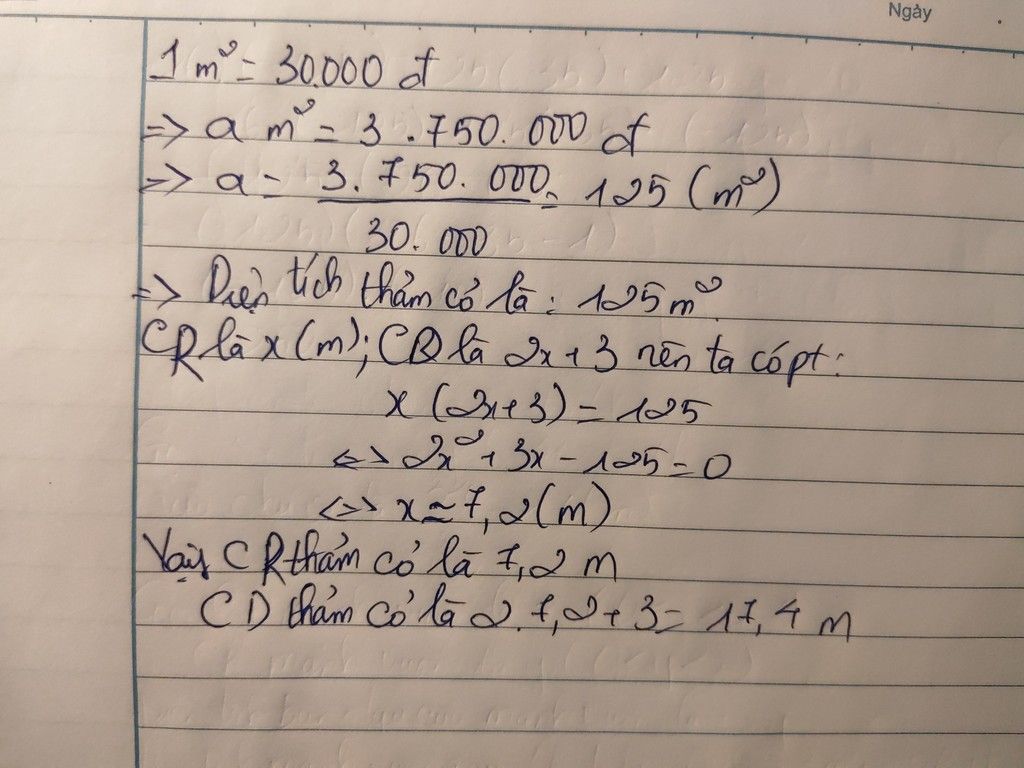 Ngày
1 m² = 30.000 đ
=> a m² = 3.750.000 đ
=> a = 3.750.000 = 125 (m²)
30.000
=> Diện tích thảm cỏ là: 125 m².
CR là x (m); CD là 2x + 3 nên ta có pt:
x (2x+3) = 125
<=> 2x² + 3x - 125 = 0
<=> x ≃ 7,2 (m)
Vậy CR thảm cỏ là 7,2 m
CD thảm cỏ là 2.7,2 + 3 = 17,4 m